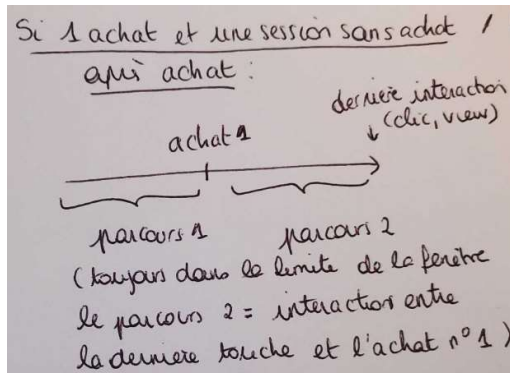 Si 1 achat et une session sans achat /
après achat :
dernière interaction
(clic, view)
achat 1
parcours 1
parcours 2
(toujours dans la limite de la fenêtre
le parcours 2 = interaction entre
la dernière touche et l'achat n°1)